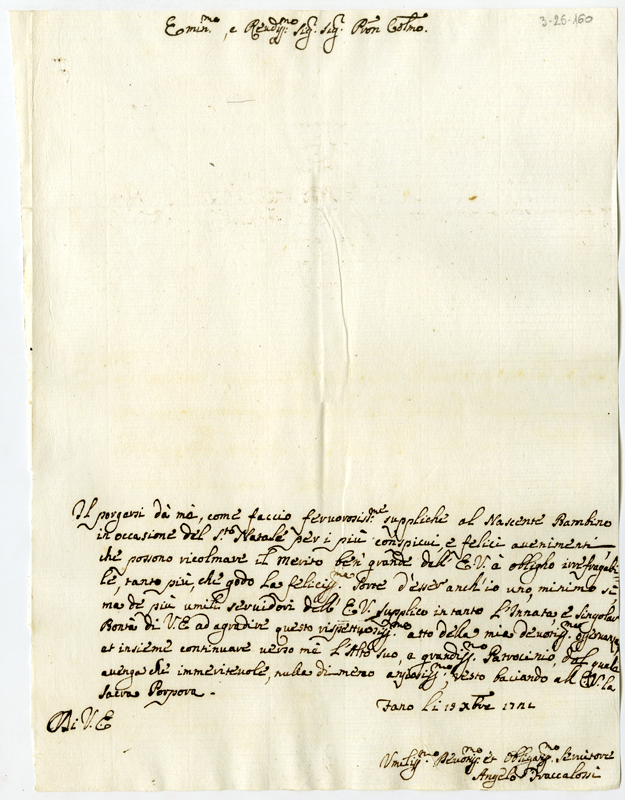 3-26-160
Emin.mo, e Reudis.mo Sig. Sig. Pron Colmo.
Il porgersi dà mè, come faccio feruorosiss.me suppliche al Nascente Bambino
in occasione del S.to Natale per i più conspicui e felici auenimenti
che possono ricolmare il Merito ben grande dell' E.V. à obligho irrefragabi=
le, tanto più, che godo la feliciss.ma sorte d'esser anch'io uno, minimo sì
ma de più umili seruidori dell' E.V. supplico in tanto l'Innata, e singolar
Bontà di V.E. ad agradire questo rispettuosiss.mo atto della mia deuotiss.ma osseruanza
et insieme continuare uerso mè l'Alto suo, e grandiss.mo Patrocinio, del quale
auenga che immeriteuole, nulla di meno ansiosiss.mo, resto baciando all' E.V. la
Sacra Porpora.
Fano li 19 Xbre 1721
Di V.E
Umiliss.mo Deuotis.mo et Obligatis.mo Seruitore
Angelo